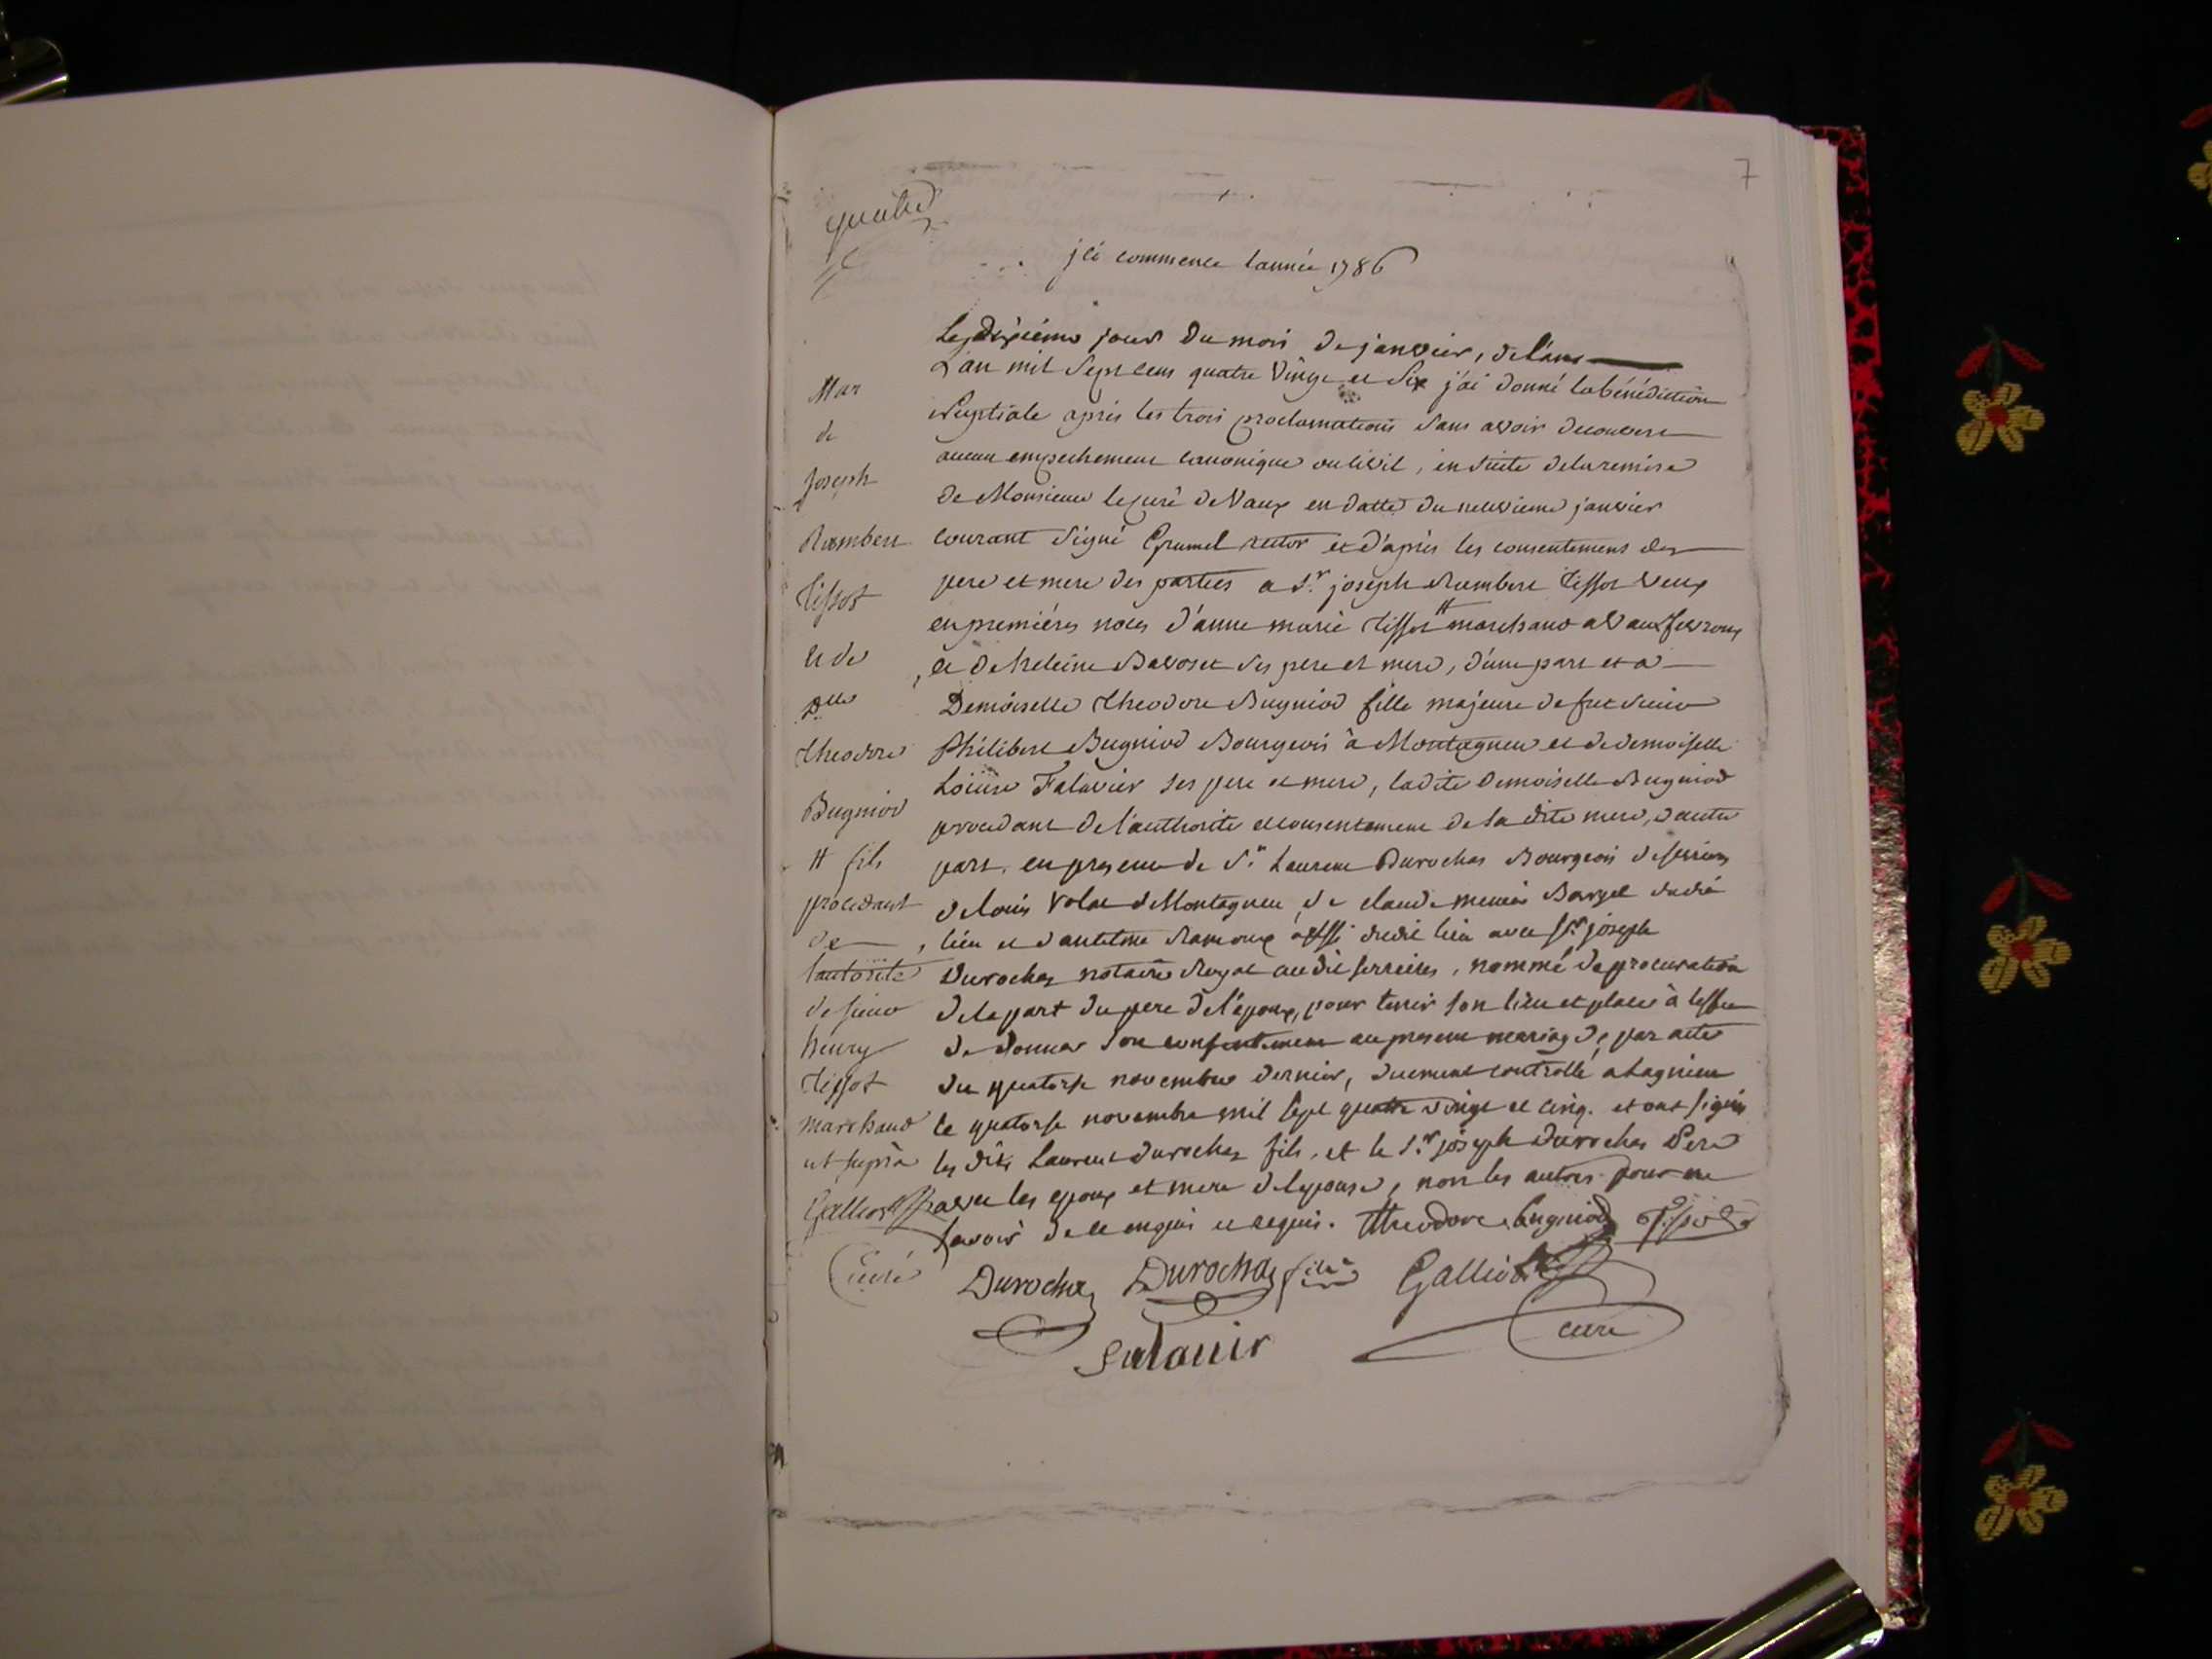 7
jci commence lannée 1786
Le dixième jour du mois de janvier, de l'an
L'an mil sept cens quatre vingt et six j'ai donné la bénédiction
Nuptiale après les trois proclamations sans avoir decouvert
aucun empechement canonique ou civil, en suite de la remise
de Monsieur le curé de Vaux en datte du neuvieme janvier
courant signé Grumel rector et d'après les consentemens des
pere et mere des parties a Sr. joseph Rambert Tissot veuf
en premières noces d'anne marie Tissot # marchand a Vaux
et de heleine Bavoset ses pere et mere, d'une part et a
Demoiselle theodore Bugniod fille majeure de feu sieur
Philibert Bugniod Bourgeois à Montagneu et de demoiselle
Loüise Falavier ses pere et mere, ladite Demoiselle Bugniod
procedant de l'authorité et consentement de sa dite mere, d'autre
part. en presence de Sr. Laurent Durochas Bourgeois de serrieres
de louis Volat de Montagneu, de claude Bargel dudit
lieu et d'antelme Ramoux aussi dudit lieu avec Sr joseph
Durochas notaire Royal audit serrieres, nommé de procuration
de la part du pere de l'époux, pour tenir son lieu et place à l'effet
de donner son consentement au present mariage, par acte
du quatorse novembre dernier, duement controllé a Lagnieu
le quatorse novembre mil sept quatre vingt et cinq. et ont signés
les dits Laurent Durochas fils, et le Sr. joseph Durochas Pere
avec les epoux et mere de lepouse, non les autres pour ne
savoir de ce enquis et requis. Theodore Bugniod Tissot
Durochas Durochas fils Galliod
curé
Falavier
Mar
de
Joseph
Rambert
Tissot
et de
Dlle
theodore
Bugniod
# fils
procedant
de
l'autorité
de sieur
henry
Tissot
marchand
ut suprà
Galliod
Curé